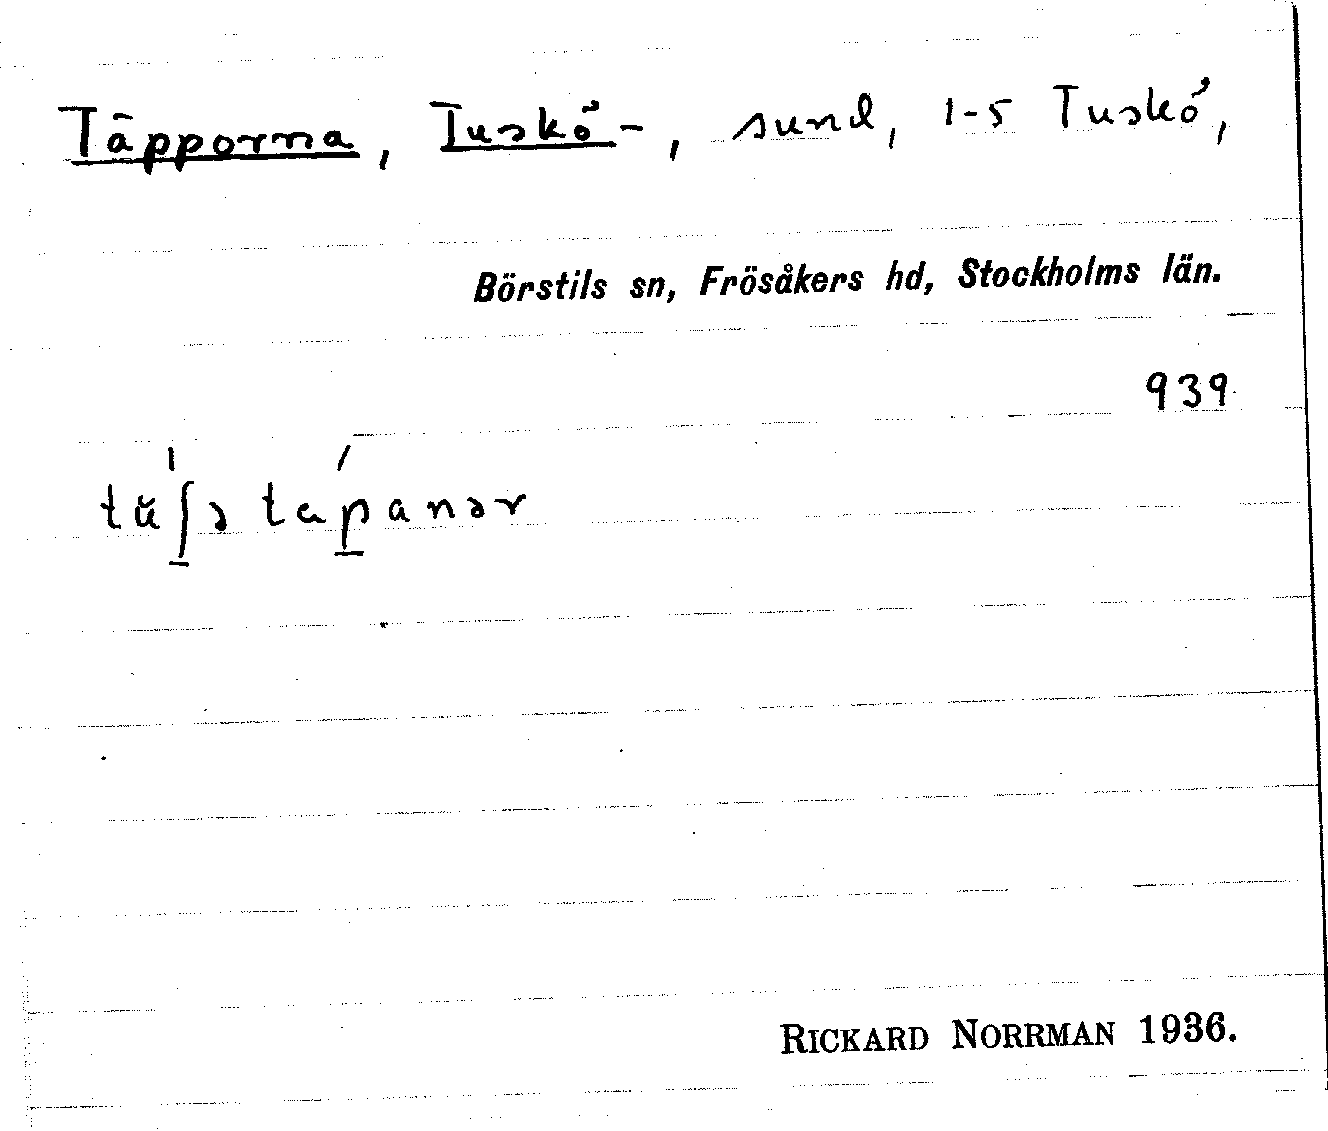 Täpporna, Tuskö-, sund, 1-5 Tuskö,
Börstils sn, Frösåkers hd, Stockholms län.
939
RICKARD NORRMAN 1936.